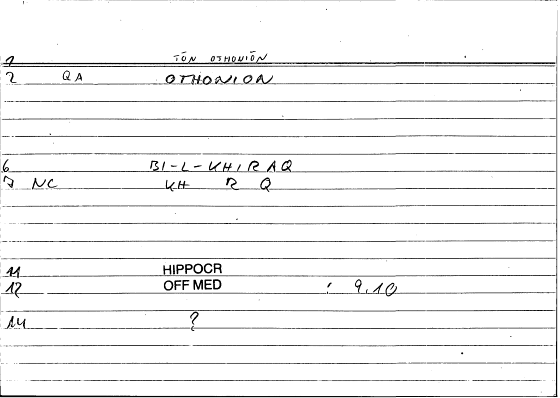 1 TŌN OTHONIŌN
2 QA OTHONION
6 BI-L-KHIRAQ
7 NC KH R Q
11 HIPPOCR
12 OFF MED : 9.10
14 ?